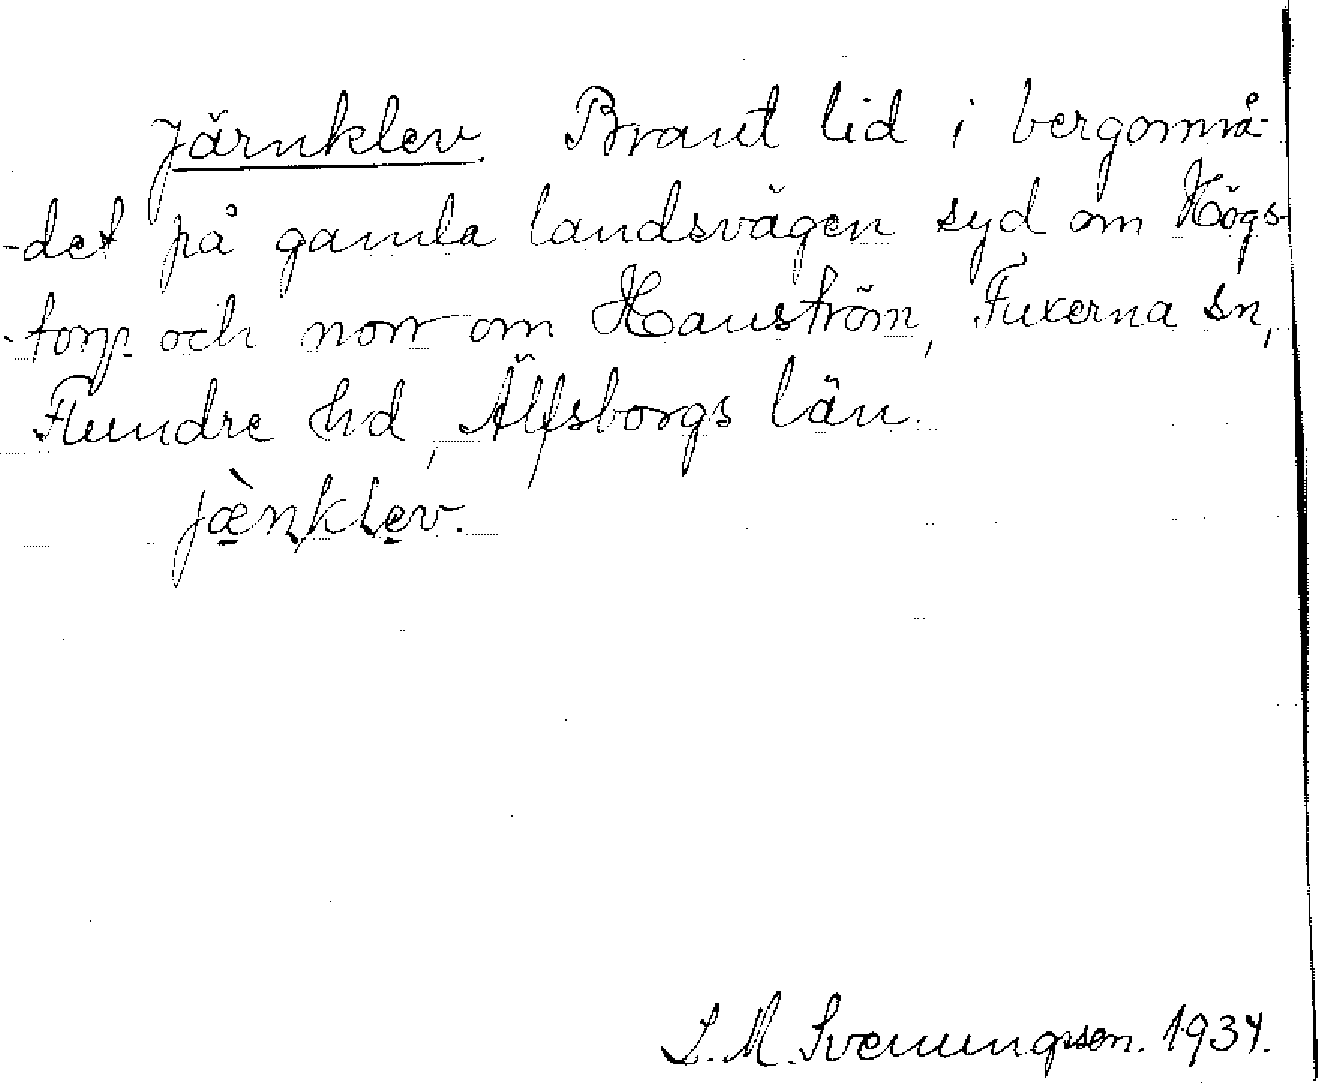 Järnklev. Brant lid i bergområ-
-det på gamla landsvägen syd om Högs-
-torp och norr om Hanström, Fuxerna sn,
Flundre hd, Älfsborgs län.
jæ̀nklev.
L. M. Svenungsson. 1934.